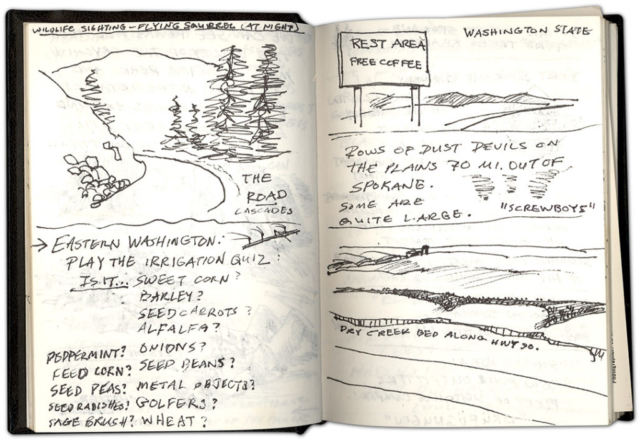 WILDLIFE SIGHTING - FLYING SQUIRREL (AT NIGHT)
THE
ROAD
CASCADES
→ EASTERN WASHINGTON.
PLAY THE IRRIGATION QUIZ:
IS IT... SWEET CORN?
BARLEY?
SEED CARROTS?
ALFALFA?
PEPPERMINT? ONIONS?
FEED CORN? SEED BEANS?
SEED PEAS? METAL OBJECTS?
SEED RADISHES? GOLFERS?
SAGE BRUSH? WHEAT?
WASHINGTON STATE
REST AREA
FREE COFFEE
ROWS OF DUST DEVILS ON
THE PLAINS 70 MI. OUT OF
SPOKANE.
SOME ARE
QUITE LARGE.
"SCREWBOYS"
DRY CREEK BED ALONG HWY 90.